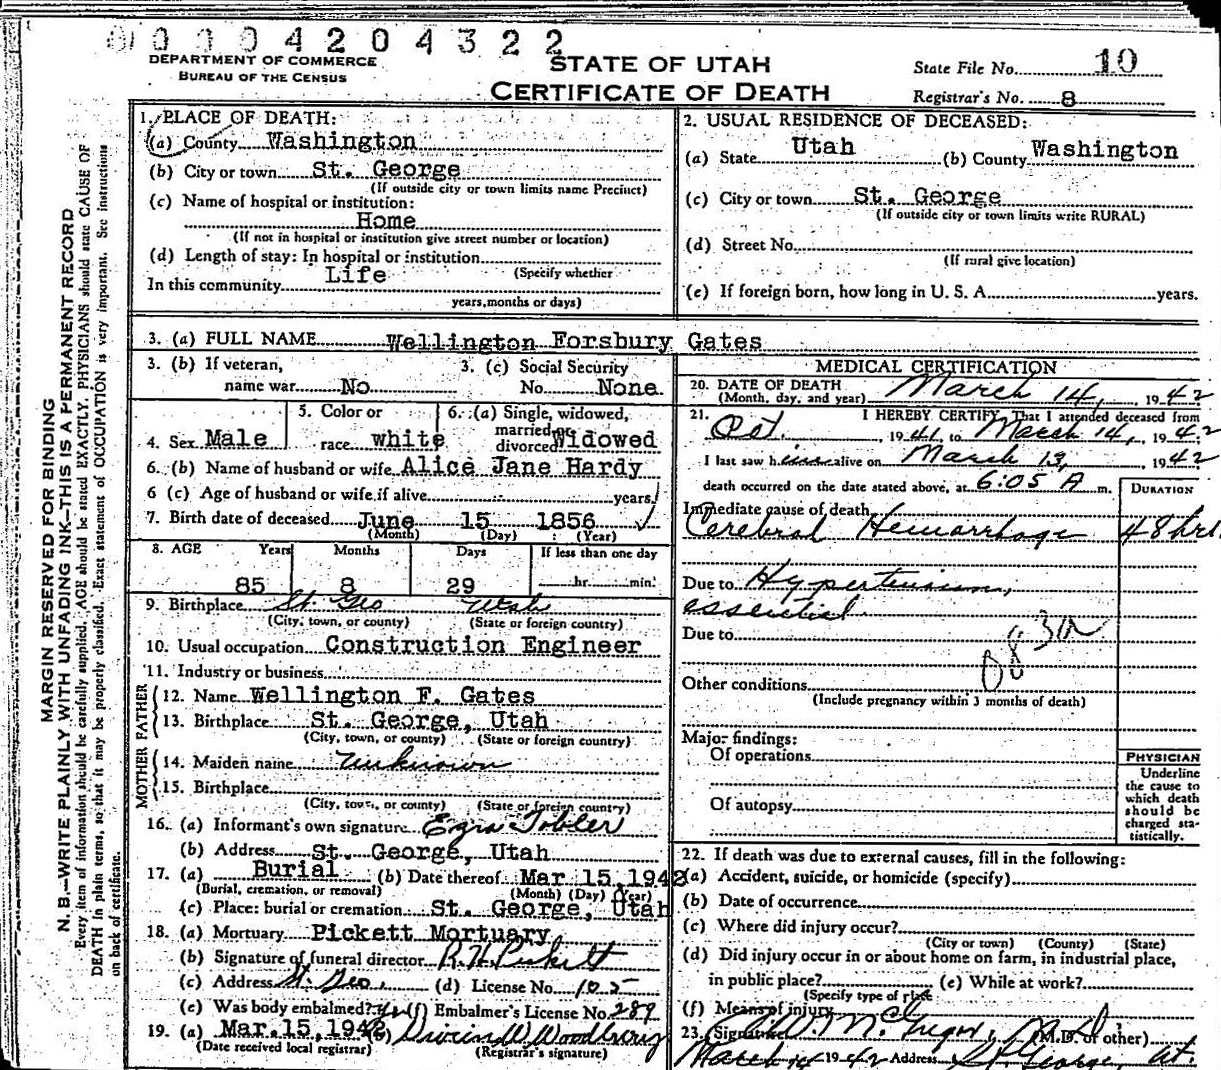 0 0 0 4 2 0 4 3 2 2
DEPARTMENT OF COMMERCE
BUREAU OF THE CENSUS
STATE OF UTAH
CERTIFICATE OF DEATH
State File No. 10
Registrar's No. 8
MARGIN RESERVED FOR BINDING
N. B.—WRITE PLAINLY WITH UNFADING INK—THIS IS A PERMANENT RECORD
Every item of information should be carefully supplied. AGE should be stated EXACTLY. PHYSICIANS should state CAUSE OF
DEATH in plain terms, so that it may be properly classified. Exact statement of OCCUPATION is very important. See instructions
on back of certificate.
1. PLACE OF DEATH:
(a) County Washington
(b) City or town St. George
(If outside city or town limits name Precinct)
(c) Name of hospital or institution:
Home
(If not in hospital or institution give street number or location)
(d) Length of stay: In hospital or institution
(Specify whether
In this community Life
years, months or days)
2. USUAL RESIDENCE OF DECEASED:
(a) State Utah (b) County Washington
(c) City or town St. George
(If outside city or town limits write RURAL)
(d) Street No.
(If rural give location)
(e) If foreign born, how long in U. S. A. years.
3. (a) FULL NAME Wellington Forsbury Gates
3. (b) If veteran,
name war No
3. (c) Social Security
No. None
4. Sex Male
5. Color or
race white
6. (a) Single, widowed,
married or
divorced Widowed
6. (b) Name of husband or wife Alice Jane Hardy
6 (c) Age of husband or wife if alive years
7. Birth date of deceased June 15 1856
(Month) (Day) (Year)
8. AGE Years Months Days If less than one day
85 8 29 hr. min.
9. Birthplace St. Geo Utah
(City, town, or county) (State or foreign country)
10. Usual occupation Construction Engineer
11. Industry or business
FATHER
12. Name Wellington F. Gates
13. Birthplace St. George, Utah
(City, town, or county) (State or foreign country)
MOTHER
14. Maiden name Unknown
15. Birthplace
(City, town, or county) (State or foreign country)
16. (a) Informant's own signature Ezra Tobler
(b) Address St. George, Utah
17. (a) Burial (b) Date thereof Mar 15 1942
(Burial, cremation, or removal) (Month) (Day) (Year)
(c) Place: burial or cremation St. George, Utah
18. (a) Mortuary Pickett Mortuary
(b) Signature of funeral director R. H. Pickett
(c) Address St. Geo, (d) License No. 105
(e) Was body embalmed? yes (f) Embalmer's License No. 289
19. (a) Mar. 15, 1942 (b) Woodbury
(Date received local registrar) (Registrar's signature)
MEDICAL CERTIFICATION
20. DATE OF DEATH
(Month, day, and year) March 14, 1942
21. I HEREBY CERTIFY, That I attended deceased from
Oct. , 1941, to March 14, , 1942
I last saw him alive on March 13, 1942
death occurred on the date stated above, at 6:05 A m.
DURATION
Immediate cause of death
Cerebral Hemorrhage 48 hrs.
Due to Hypertension,
essential
Due to
083a
Other conditions
(Include pregnancy within 3 months of death)
Major findings:
Of operations
Of autopsy
PHYSICIAN
Underline
the cause to
which death
should be
charged sta-
tistically.
22. If death was due to external causes, fill in the following:
(a) Accident, suicide, or homicide (specify)
(b) Date of occurrence
(c) Where did injury occur?
(City or town) (County) (State)
(d) Did injury occur in or about home on farm, in industrial place,
in public place? (e) While at work?
(Specify type of place
(f) Means of injury
23. (Signature) McGregor, (M.D. or other)
March 14 1942 Address St George, Ut.